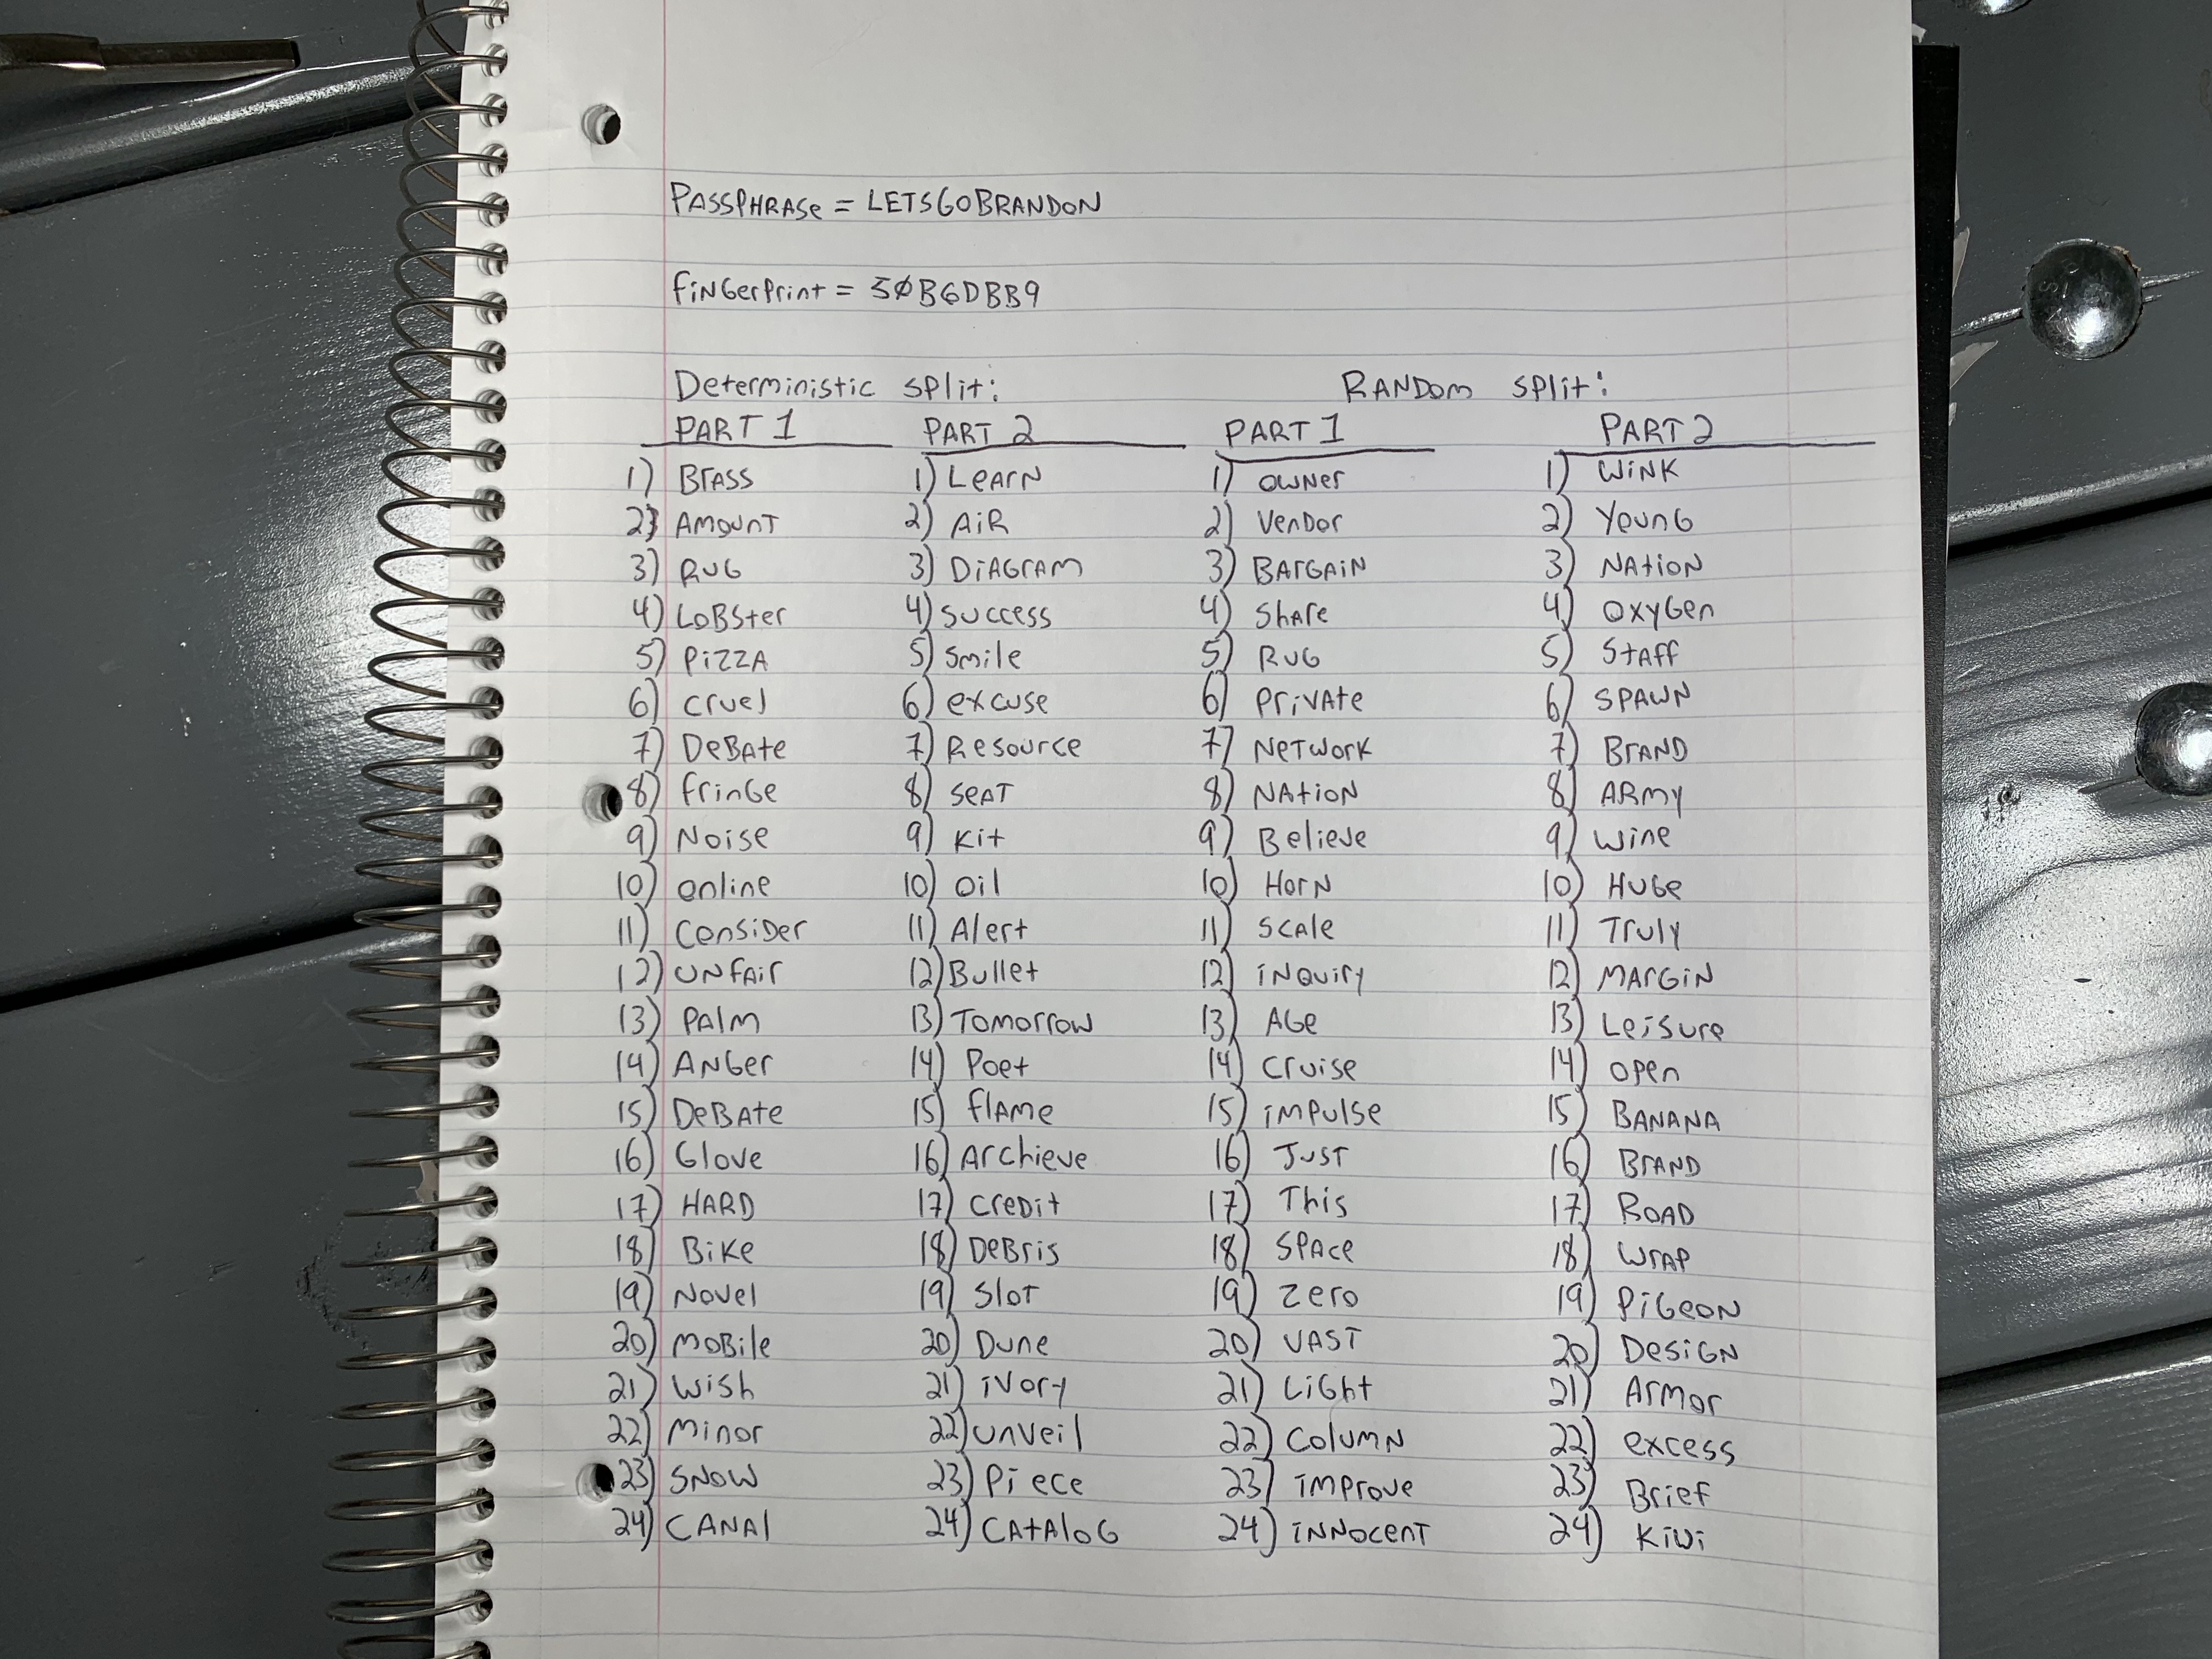 PASSPHRASE = LETSGOBRANDON
FINGERPRINT = 5ØB6DBB9
Deterministic split: RANDOM split:
PART 1 PART 2 PART 1 PART 2
1) BrASS 1) LEARN 1) OWNER 1) WINK
2) AMOUNT 2) AIR 2) VENDOR 2) YOUNG
3) RUG 3) DIAGRAM 3) BARGAIN 3) NATION
4) LOBSTER 4) SUCCESS 4) SHARE 4) OXYGEN
5) PIZZA 5) SMILE 5) RUG 5) STAFF
6) CRUEL 6) EXCUSE 6) PRIVATE 6) SPAWN
7) DEBATE 7) RESOURCE 7) NETWORK 7) BRAND
8) FRINGE 8) SEAT 8) NATION 8) ARMY
9) NOISE 9) KIT 9) BELIEVE 9) WINE
10) ONLINE 10) OIL 10) HORN 10) HUGE
11) CONSIDER 11) ALERT 11) SCALE 11) TRULY
12) UNFAIR 12) BULLET 12) INQUIRY 12) MARGIN
13) PALM 13) TOMORROW 13) AGE 13) LEISURE
14) ANGER 14) POET 14) CRUISE 14) OPEN
15) DEBATE 15) FLAME 15) IMPULSE 15) BANANA
16) GLOVE 16) ARCHIEVE 16) JUST 16) BRAND
17) HARD 17) CREDIT 17) THIS 17) ROAD
18) BIKE 18) DEBRIS 18) SPACE 18) WRAP
19) NOVEL 19) SLOT 19) ZERO 19) PIGEON
20) MOBILE 20) DUNE 20) VAST 20) DESIGN
21) WISH 21) IVORY 21) LIGHT 21) ARMOR
22) MINOR 22) UNVEIL 22) COLUMN 22) EXCESS
23) SNOW 23) PIECE 23) IMPROVE 23) BRIEF
24) CANAL 24) CATALOG 24) INNOCENT 24) KIWI